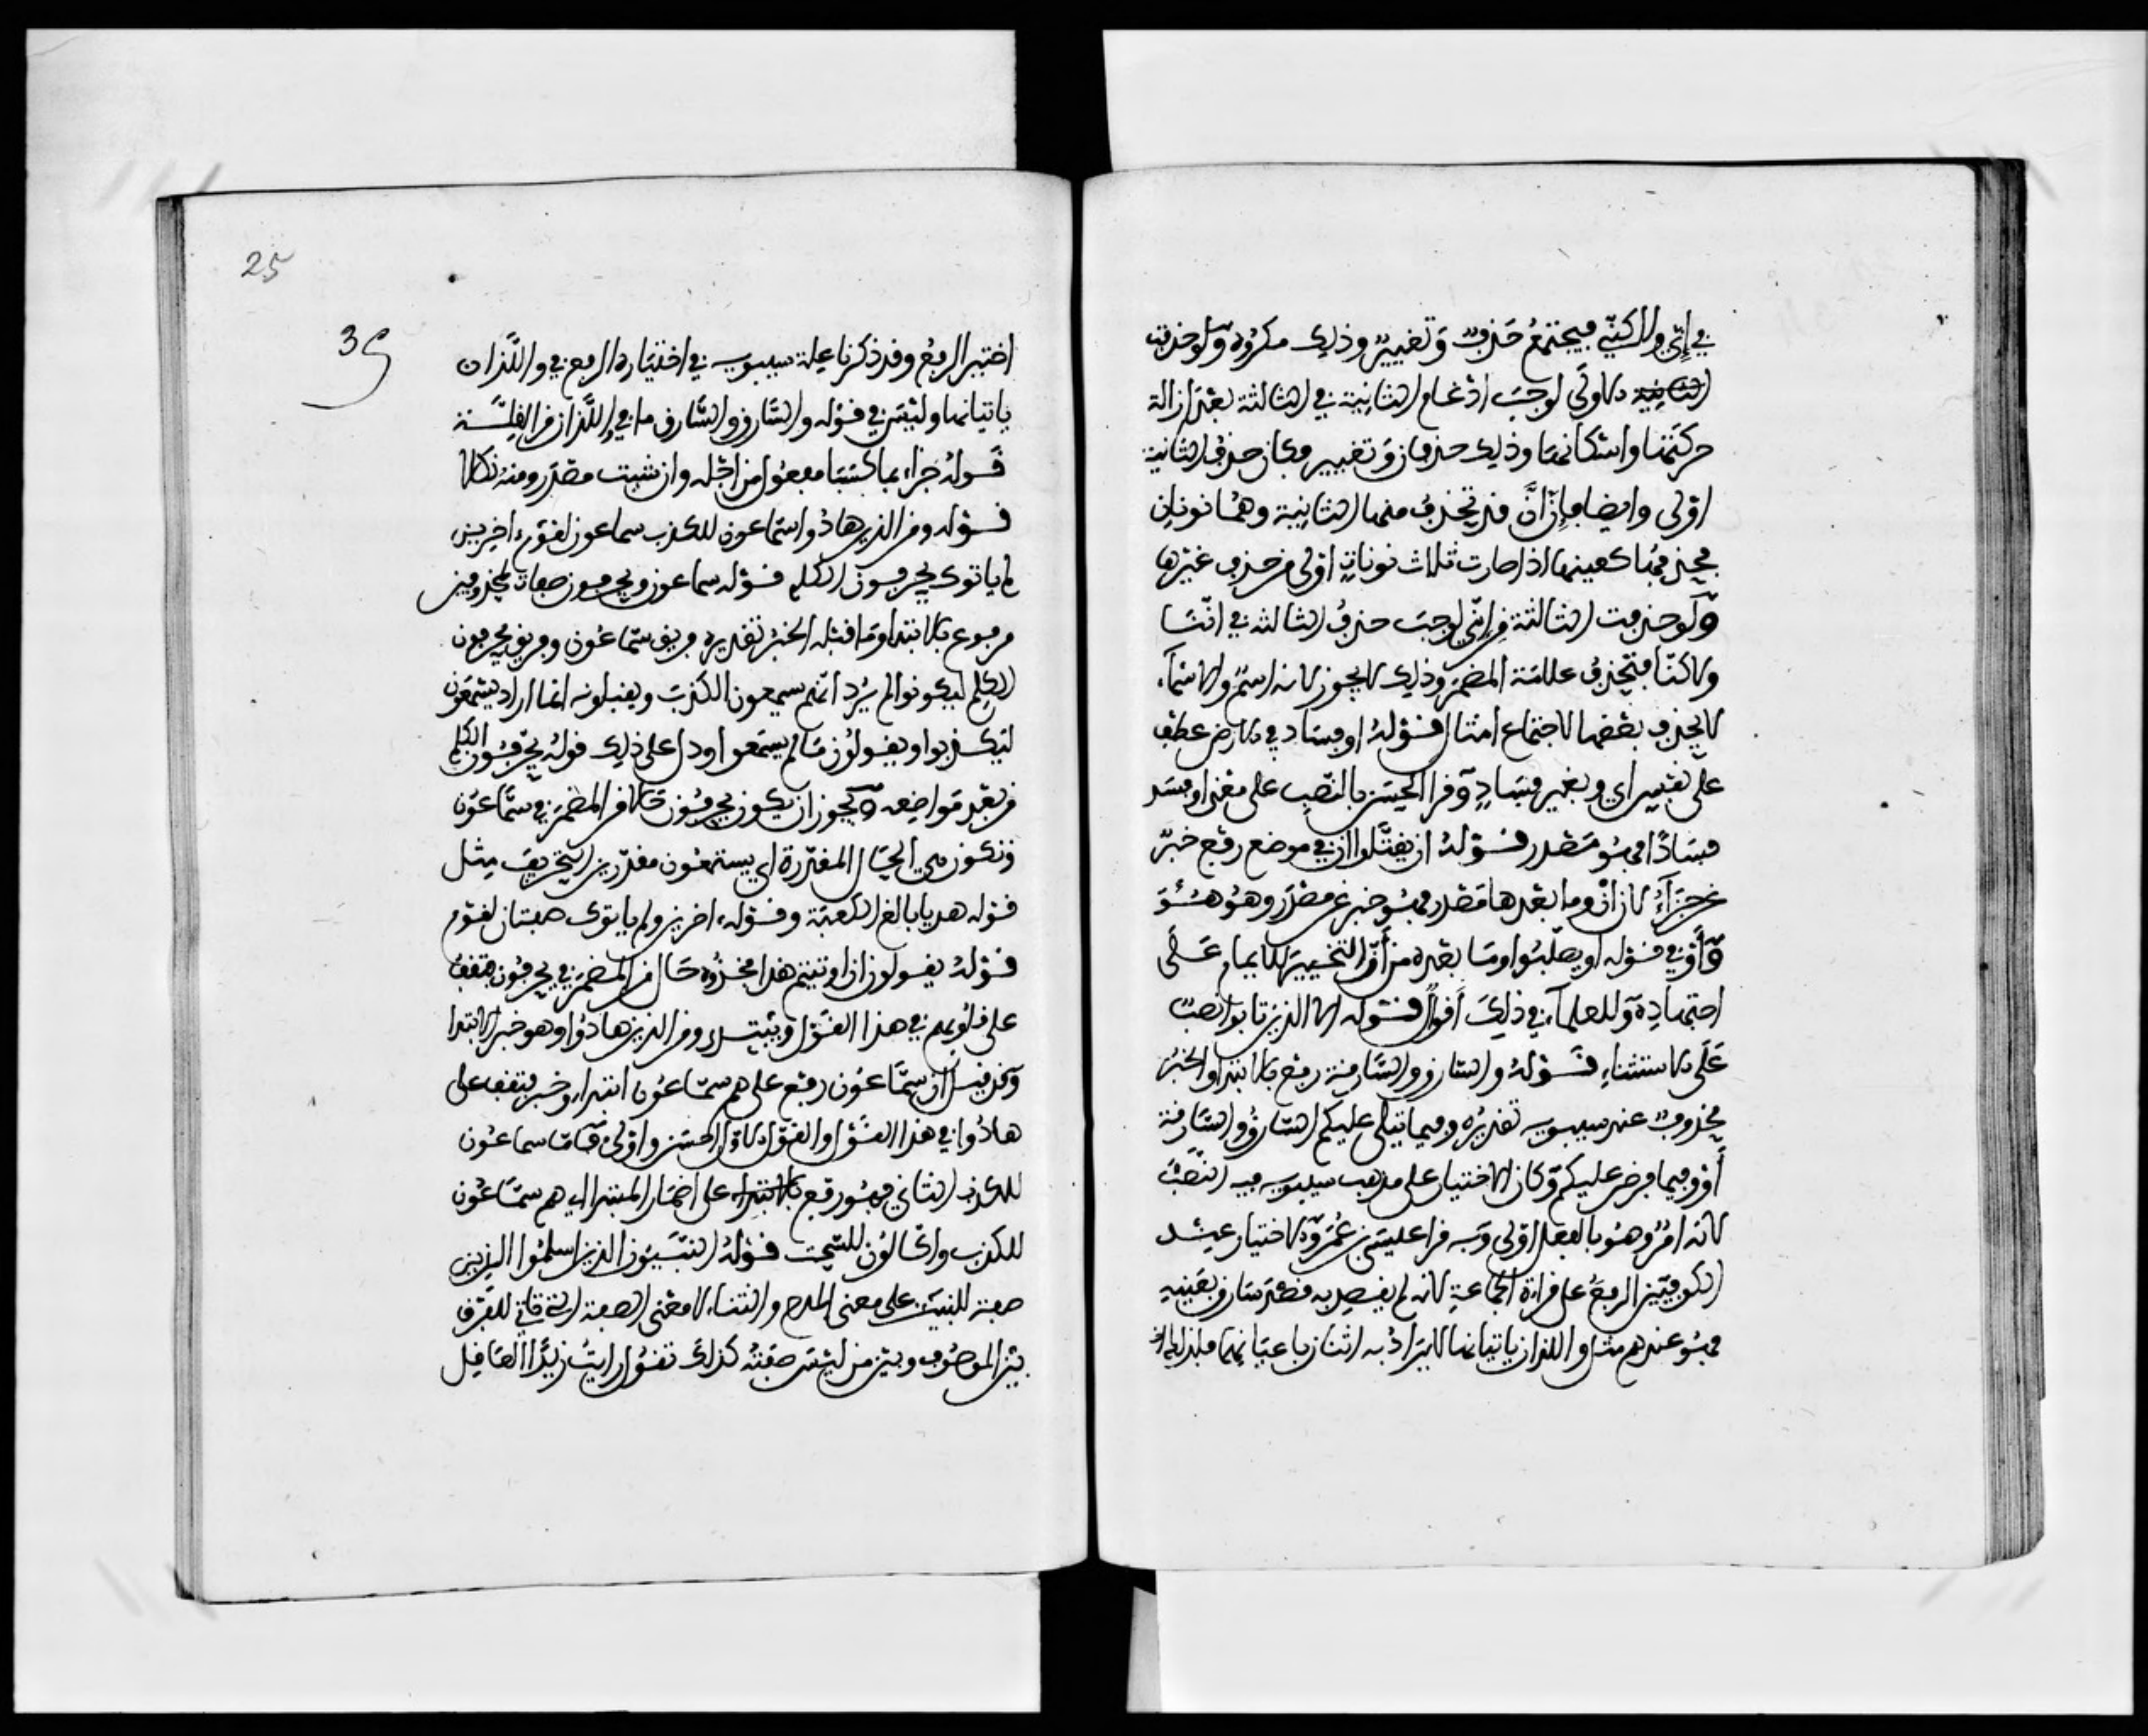 في إني ولاكني فيجتمع حذف وتغيير وذلك مكروه ولو حذفت
الثانية الاولى لوجب ادغام الثانية في الثالثة بعد ازالة
حركتها واسكانها وذلك حذفان وتغيير فكان حذف الثانية
اولى وايضا فإن أنّ قد تحذف منها الثانية وهما نونان
فحذفها كعينها اذا صارت ثلاث نونات اولى من حذف غيرها
ولو حذفت الثالثة من إني لوجب حذف الثالثة في انّنا
ولاكننا فتحذف علامة المضمر وذلك لا يجوز لانه اسم والاسماء
لا يحذف بعضها لاجتماع امثال قوله او فساد في الارض عطف
على نفس اي وبغير فساد وقرا الحسن بالنصب على معنى او فسد
فسادا فهو مصدر قوله ان يقتلوا ان في موضع رفع خبر
عن جزاء لان ان وما بعدها مصدر فهو خبر عن مصدر وهو هو
وأو في قوله او يصلبوا وما بعده من أو للتخيير للامام على
اجتهاده وللعلماء في ذلك أقوال قوله الا الذين تابوا نصب
على الاستثناء قوله والسارق والسارقة رفع بالابتداء والخبر
محذوف عند سيبويه تقديره وفيما يتلى عليكم السارق والسارقة
أو وفيما فرض عليكم وكان الاختيار على مذهب سيبويه فيه النصب
لانه امر وهو بالفعل اولى وبه قرا عيسى بن عمر والاختيار عند
الكوفيين الرفع على قراءة الجماعة لانه لم يقصد به قصد سارق بعينه
فهو عندهم مثل واللذان ياتيانها لا يراد به اثنان باعيانهما فلذلك
25
35
اختير الرفع وقد ذكرنا علة سيبويه في اختياره الرفع في واللذان
ياتيانها وليس في قوله والسارق والسارق ما في واللذان من العلة
قوله جزاء بما كسبا مفعول من اجله وان شيت مصدر ومثه نكالا
قوله ومن الذين هادوا سماعون للكذب سماعون لقوم اخرين
لم ياتوك يحرفون الكلم قوله سماعون ويحرفون صفات لمحذوفين
مرفوع بالابتداء وما قبله الخبر تقديره فريق سماعون وفريق يحرفون
الكلم ليكونوا لم يرد انهم يسمعون الكذب ويقبلونه انما اراد يسمعون
ليكذبوا ويقولون ما لم يسمعوا ودل على ذلك قوله يحرفون الكلم
من بعد مواضعه ويجوز ان يكون يحرفون حالا من المضمر في سماعون
وتكون هي الحال المقدرة اي يستمعون مقدرين التحريف مثل
قوله هديا بالغ الكعبة وقوله اخرين ولم ياتوك صفتان لقوم
قوله يقولون ان اوتيتم هذا فخذوه حال من المضمر في يحرفون فتقف
على قلوبهم في هذا القول ويبتدء ومن الذين هادوا وهو خبر الابتدا
وقد قيل ان سماعون رفع على هم سماعون ابتداء وخبر فتقف على
هادوا في هذا القول والقول الاول احسن واولى فاما سماعون
للكذب الثاني فهو رفع بالابتداء على اضمار المبتدا اي هم سماعون
للكذب واكالون للسحت قوله النبيئون الذين اسلموا الذين
صفة للنبيين على معنى المدح والثناء لا معنى الصفة التي تاتي للفرق
بين الموصوف وبين من ليس صفته كذلك تقول رايت زيدا العاقل